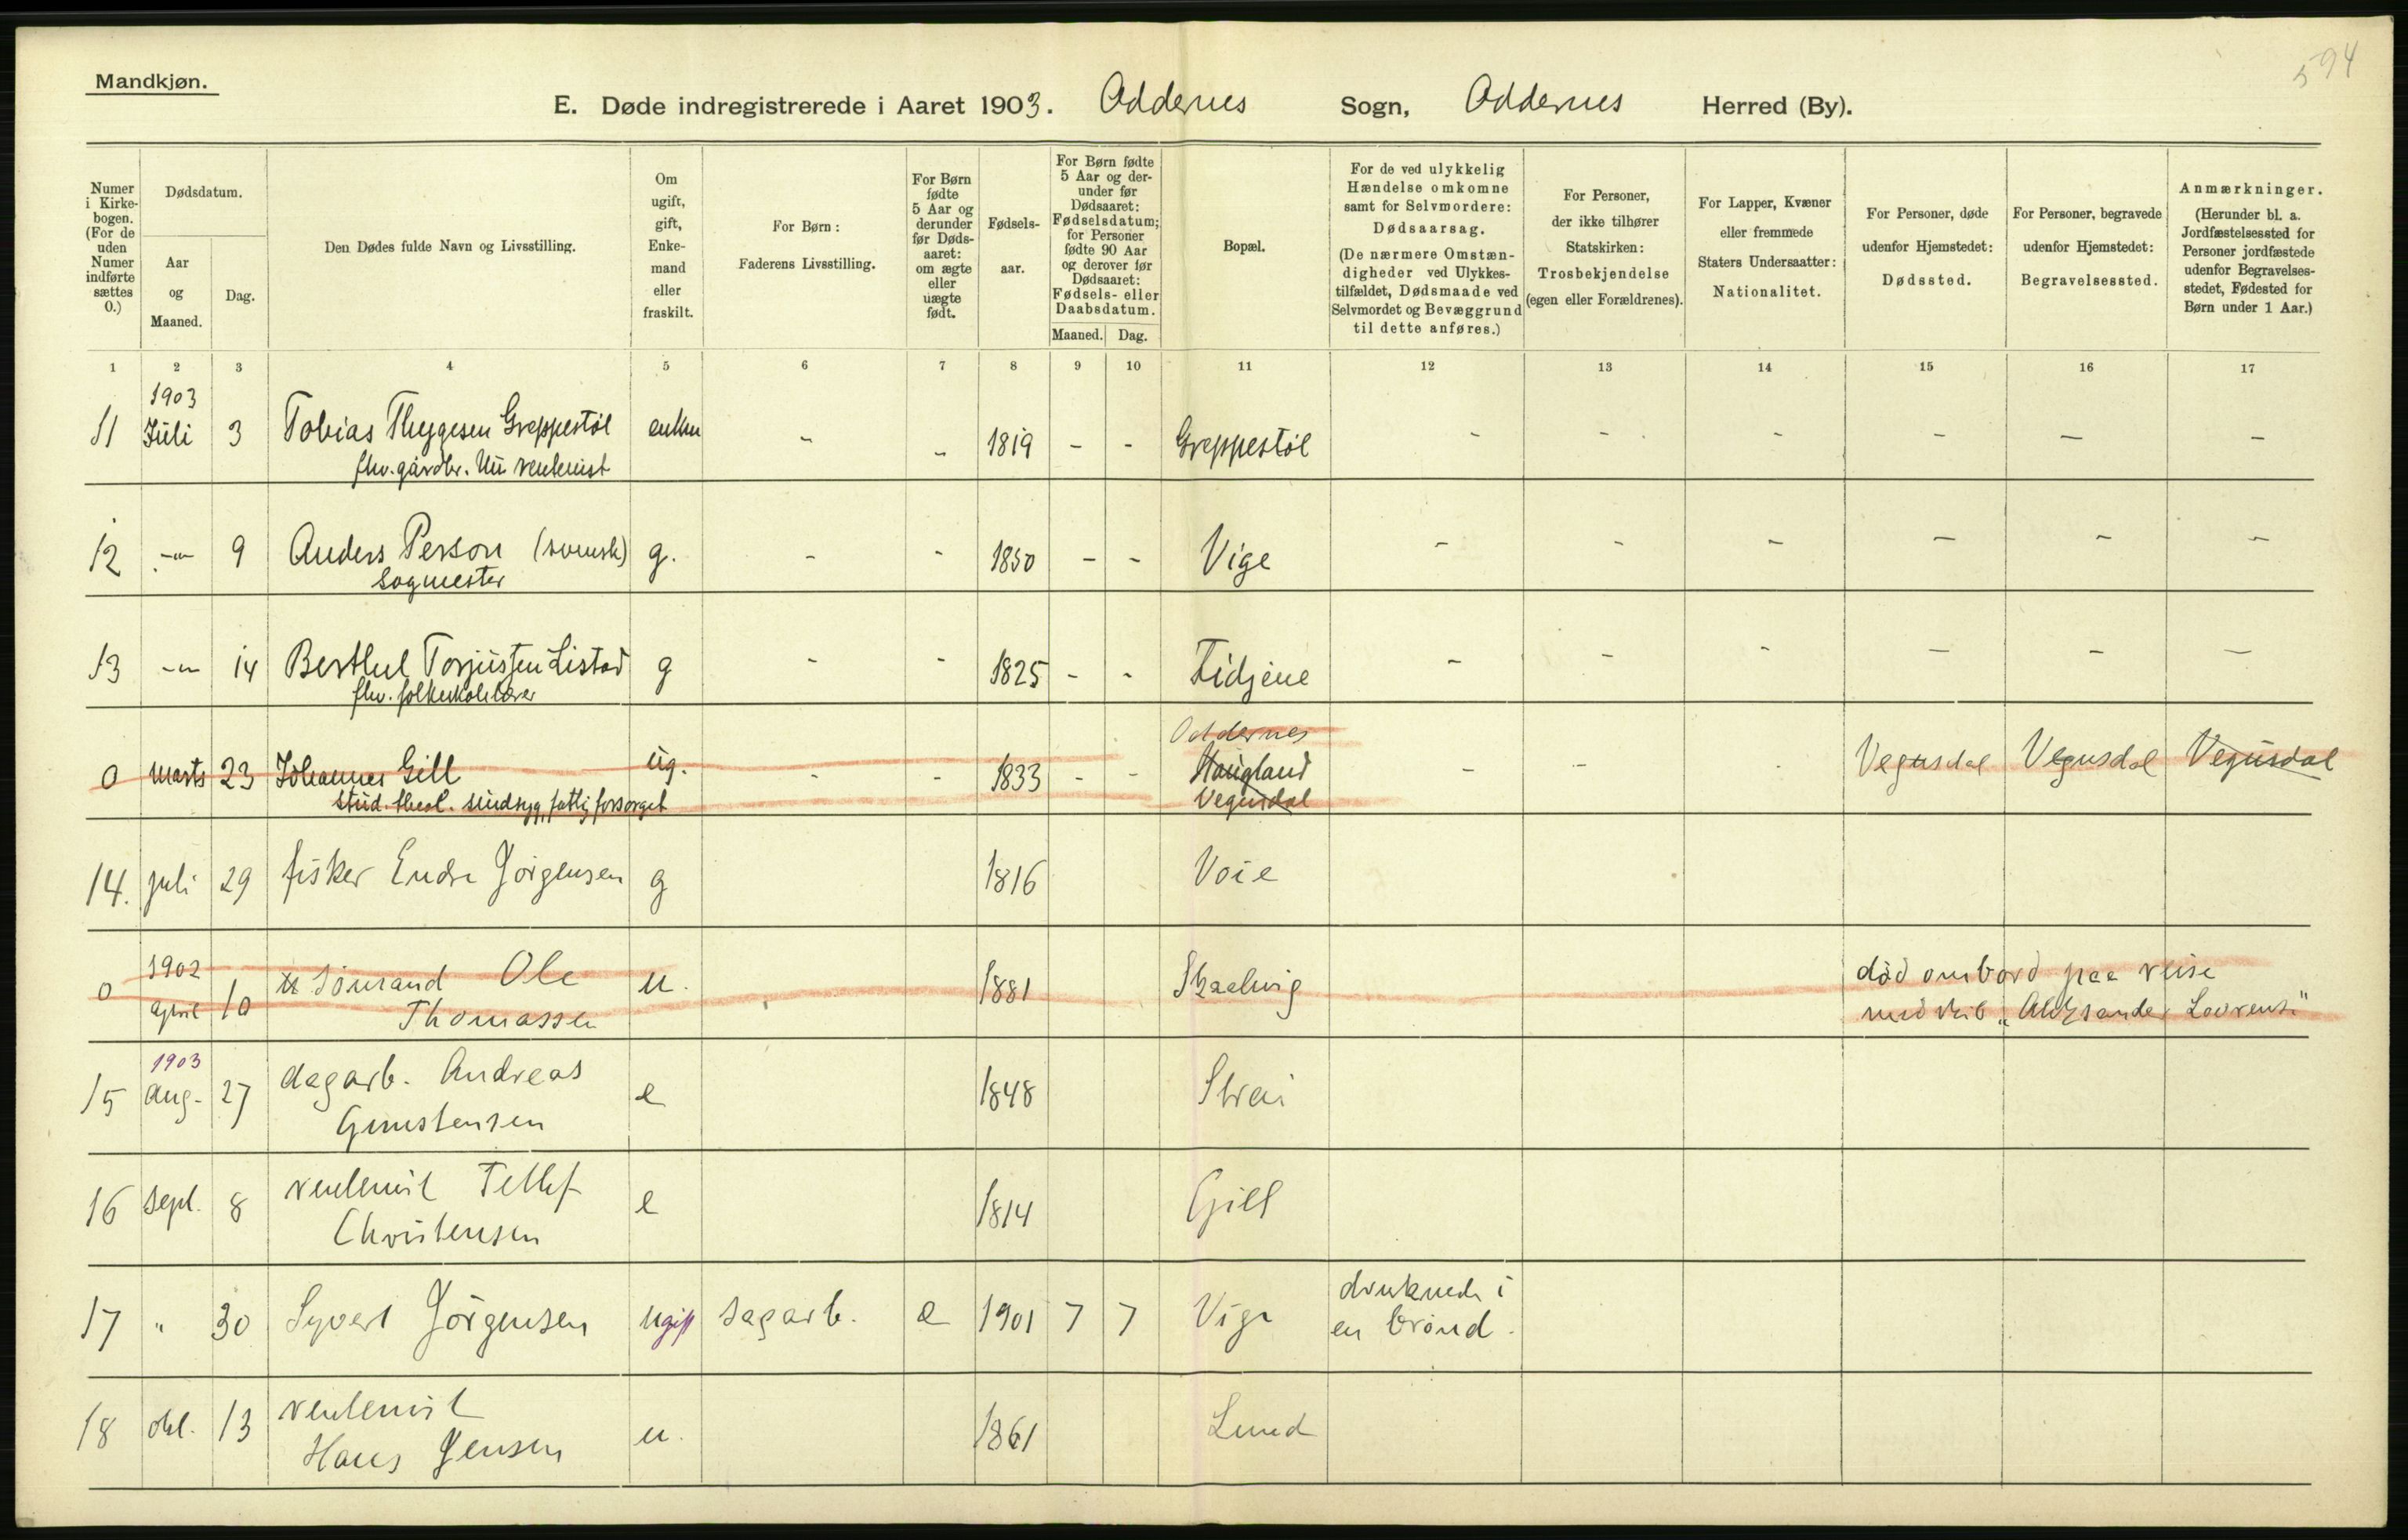 594
Mandkjøn.
E. Døde indregistrerede i Aaret 1903. Oddernes Sogn, Oddernes Herred (By).
Numer i Kirkebogen. (For de uden Numer indførte sættes 0.)
Dødsdatum.
Aar og Maaned.
Dag.
Den Dødes fulde Navn og Livsstilling.
Om ugift, gift, Enkemand eller fraskilt.
For Børn: Faderens Livsstilling.
For Børn fødte 5 Aar og derunder før Dødsaaret: om ægte eller uægte født.
Fødselsaar.
For Børn fødte 5 Aar og derunder før Dødsaaret: Fødselsdatum; for Personer fødte 90 Aar og derover før Dødsaaret: Fødsels- eller Daabsdatum.
Maaned. Dag.
Bopæl.
For de ved ulykkelig Hændelse omkomne samt for Selvmordere: Dødsaarsag. (De nærmere Omstændigheder ved Ulykkestilfældet, Dødsmaade ved Selvmordet og Bevæggrund til dette anføres.)
For Personer, der ikke tilhører Statskirken: Trosbekjendelse (egen eller Forældrenes).
For Lapper, Kvæner eller fremmede Staters Undersaatter: Nationalitet.
For Personer, døde udenfor Hjemstedet: Dødssted.
For Personer, begravede udenfor Hjemstedet: Begravelsessted.
Anmærkninger. (Herunder bl. a. Jordfæstelsessted for Personer jordfæstede udenfor Begravelsesstedet, Fødested for Børn under 1 Aar.)
1 2 3 4 5 6 7 8 9 10 11 12 13 14 15 16 17
1903
11 Juli 3 Tobias Thygesen Greppestøl - - 1819 - - Greppestøl - - - - - -
fhv. gårdbr. Nu rentenist
12 -"- 9 Anders Person (svensk) g. - - 1850 - - Vige - - - - - -
Sagmester
13 -"- 14 Berthel Torjussen Listad g - - 1825 - - Fidjene - - - - - -
fhv. folkeskolelærer
Oddernes
0 Marts 23 Johannes Gill ug. - - 1833 - - Haugland - - - Vegusdal Vegusdal Vegusdal
stud. theol. sindsyg, fattig forsørget Vegusdal
14. juli 29 fisker Endre Jørgensen g 1816 Voie
1902
0 April 10 Sømand Ole u. 1881 død ombord paa reise
Thomassen med skib
1903
15 Aug. 27 dagarb. Andreas e 1848 Strai
Gunstensen
16 Sept. 8 rentenist Tellef e 1814 Gill
Christensen
17 " 30 Syvert Jørgensen ugift sagarb. e 1901 7 7 Vige druknede i
en brønd.
18 okt. 13 rentenist u. 1861 Lund
Hans Jensen